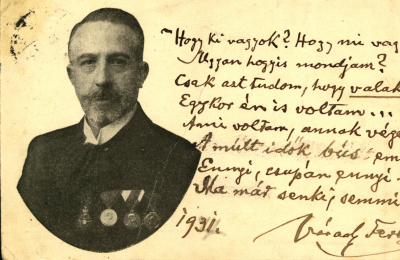 Hogy ki vagyok? Hogy mi vag
Ugyan hogyis mondjam?
Csak azt tudom, hogy valak
Egykor én is voltam...
Ami voltam, annak vége
A mult idők bús em
Ennyi, csupán ennyi
Ma már senki, semmi
1931.
Várady Fer